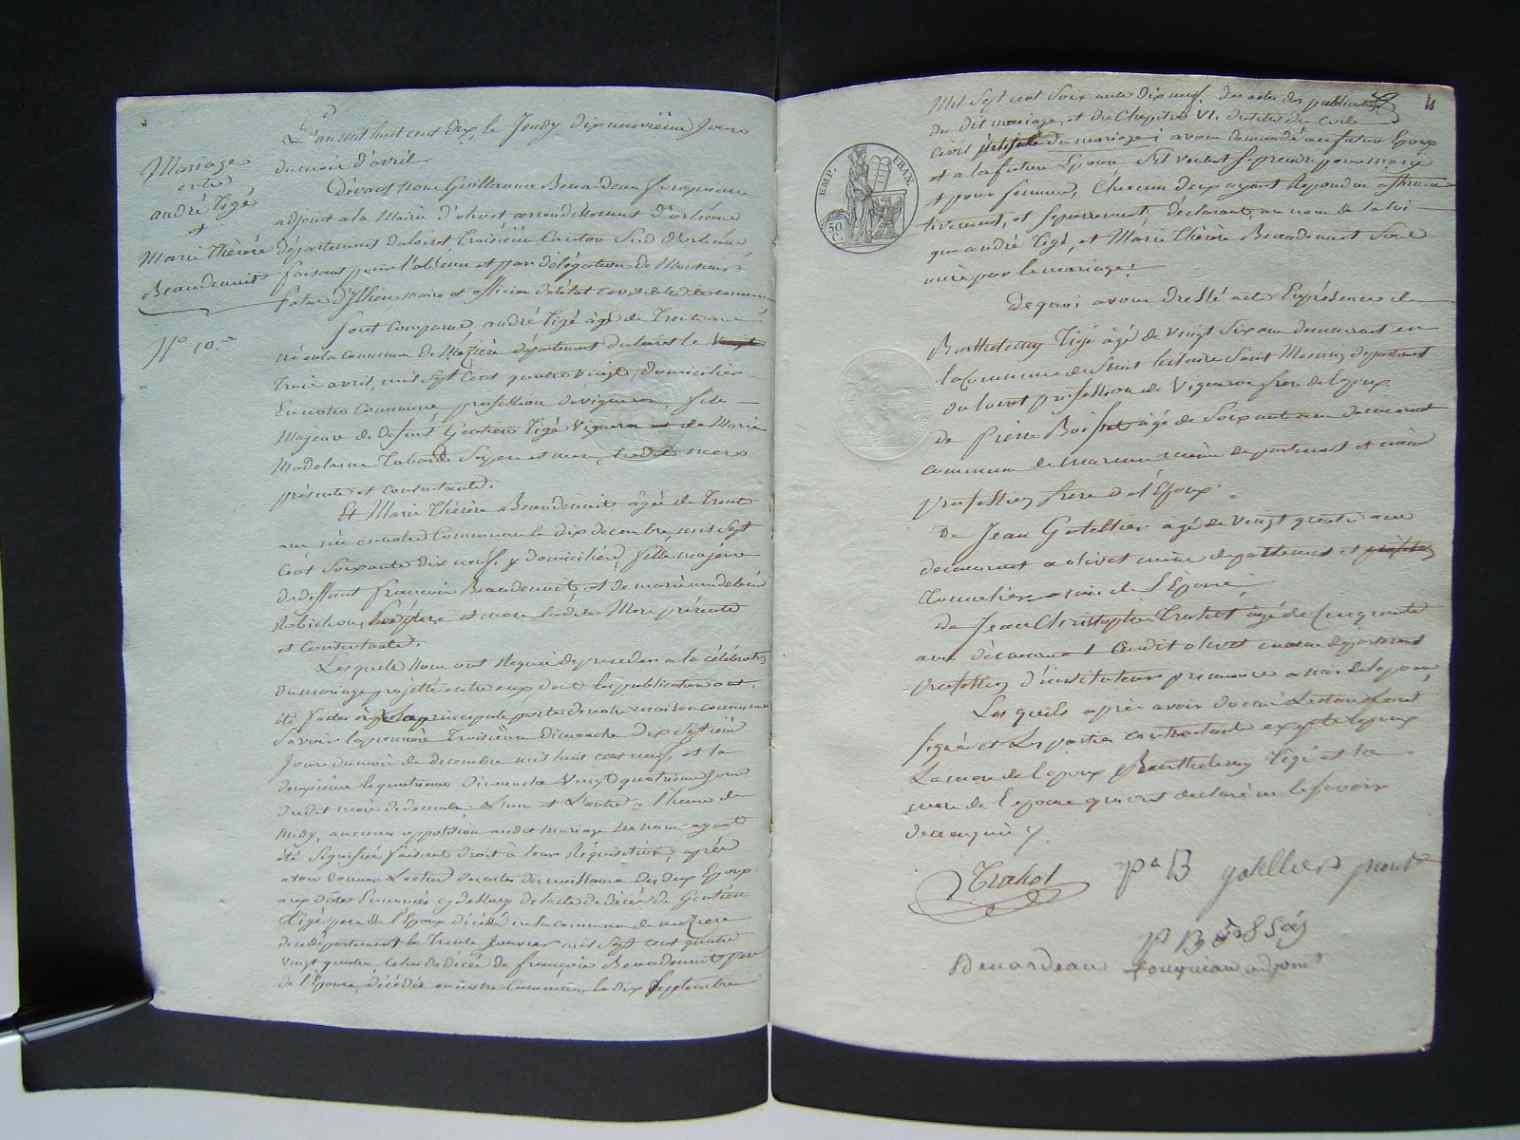 Mariage
entre
andré Tigé
et
Marie Thérèse
Beaudenuit
N° 10.
L'an mil huit cent dix, le Jeudy dixneuvième Jour
du mois d'avril
Devant nous Guillaume Benardeau fouqueau
adjoint a la Mairie d'olivet arrondissement d'orléans
département du loiret troisième Canton Sud d'orléans
faisant pour l'absence et par délégation de Monsieur
maire et officier de létat civil de la de commune
Sont Comparus, andré Tigé âgé de Trente ans
né en la commune de Mezière département du loiret le vingt
trois avril, mil sept Cent quatre vingt, domicilié
En notre Commune, profession de vigneron, fils
Majeur de defunt Gentien Tigé vigneron et de Marie
Madelaine Tabard Ses père et mere, ladite mere
présente et consentante.
Et Marie Thérèse Beaudenuit âgée de Trente
ans, née en notre Commune le dix decembre, mil sept
Cent Soixante dix neuf, y domiciliée, fille majeure
de deffunt françois Beaudenuit, et de marie madelaine
Robichon, Ses père et mere, ladite Mere présente
et Consentante.
Lesquels Nous ont Requis de proceder a la célébration
du mariage projetté entre eux dont les publications ont
été faites à la principale porte de notre maison commune
Savoir la première Troisième dimanche dix septième
Jour du mois de decembre mil huit cent neuf, et la
deuxième le quatrième dimanche vingt quatrième Jour
du dit mois de décembre L'une et L'autre a l'heure de
midy, aucune opposition audit mariage ne nous ayant
été Signifiée faisant droit à leur Réquisition, après
avoir donné Lecture des actes de naissance des deux Epoux
aux dates Enoncées cy dessus, de lacte de décès de Gentien
Tigé pere de l'Epoux décédé en la commune de mezière
dit département le Trente Janvier mil sept cent quatre
vingt quatre, celui de décès de françois Beaudenuit pere
de l'Epouse, décédé en notre Commune, le dix Septembre
Mil Sept cent Soixante Dix neuf, des actes des publications
du dit mariage, et du Chapitre VI. du titre du Code
civil intitulé du mariage; avons demandé au futur Epoux
et a la future Epouse S'il veulent Se prendre pour mary
et pour femme, Chacun deux ayant Répondu affirma-
tivement, et Séparement, déclarons au nom de la loi
que andré Tigé, et Marie Thérèse Beaudenuit Sont
unis par le mariage.
EMP. FRAN.
50
C.
De quoi avons dressé acte En présence de
Barthelemy Tigé âgé de vingt Six ans demeurant en
la Commune de Saint hilaire Saint Mesmin département
du loiret profession de Vigneron frere de lepoux
de Pierre âgé de Soixante ans demeurant
commune de mareau même département et même
profession frere de l'Epoux.
De Jean Gatellier agé de vingt quatre ans
demeurant a olivet même département et
Tonnelier ami de l'Epouse
De Jean Christophe Trahot agé de Cinquante
ans demeurant audit olivet même département
profession d'instituteur primaire ami de lepoux,
Les quels après avoir ont
Signé et Les parties contractantes excepté lepoux
La mere de l'epoux Barthelemy Tigé et la
mere de l'epouse qui ont declaré ne le savoir
de ce enquis
Trahot
P B gatellier
Benardeau fouqueau adjoint